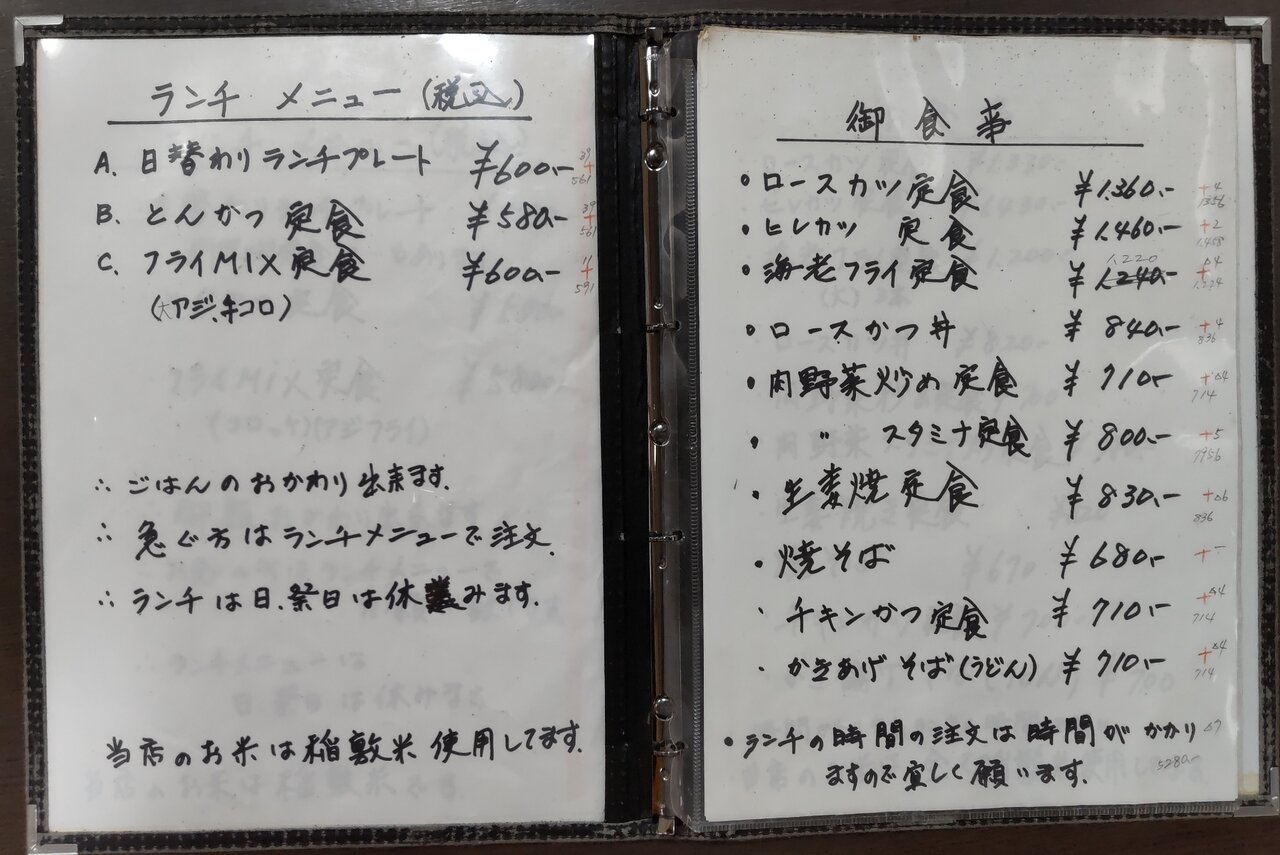 ランチ メニュー (税込)
A. 日替わりランチプレート ¥600.-
B. とんかつ 定食 ¥580.-
C. フライMIX定食 ¥600.-
∴ ごはんのおかわり出来ます.
∴ 急ぐ方はランチメニューで注文.
∴ ランチは日.祭日は休みます.
当店のお米は稲敷米使用してます.
御食事
・ロースカツ定食 ¥1.360.-
・ヒレカツ 定食 ¥1.460.-
1,220
・海老フライ定食 ¥1.240.-
・ロースかつ丼 ¥840.-
・肉野菜炒め定食 ¥710.-
・〃 スタミナ定食 ¥800.-
・生姜焼定食 ¥830.-
・焼そば ¥680.-
・チキンかつ定食 ¥710.-
・かきあげそば(うどん) ¥710.-
・ランチの時間の注文は時間がかかり
ますので宜しく願います.